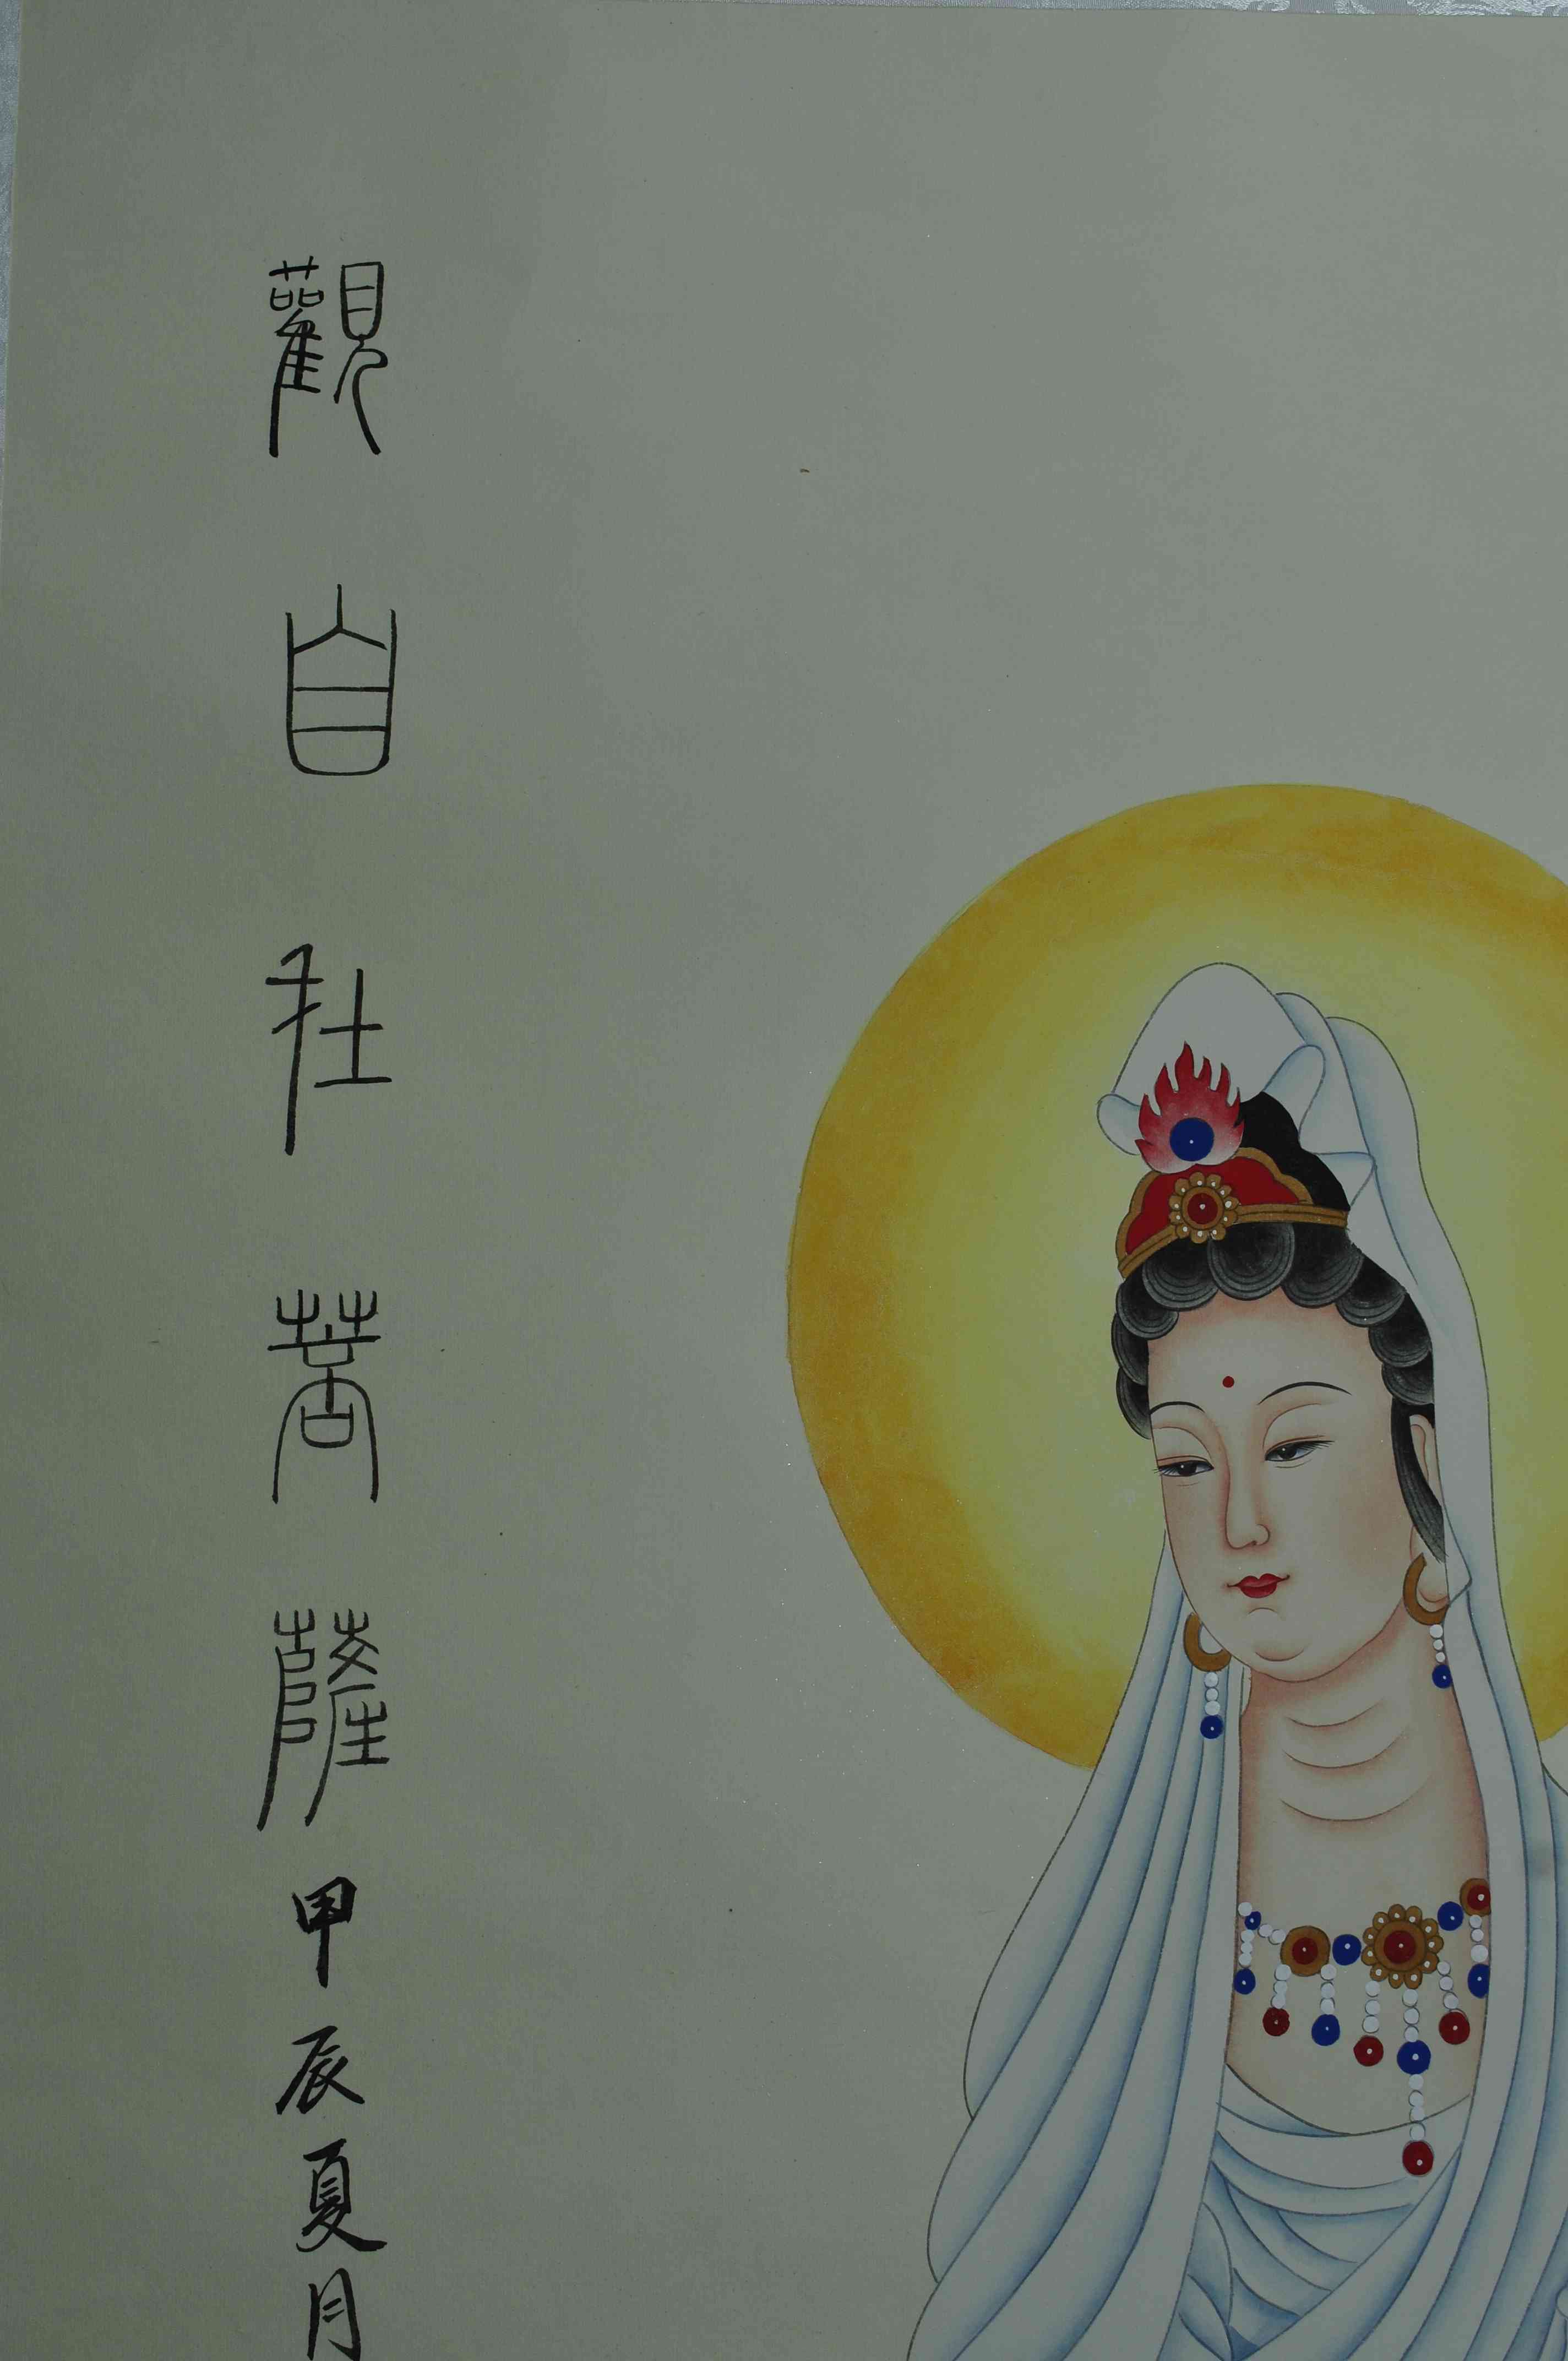 觀自在菩薩甲辰夏月